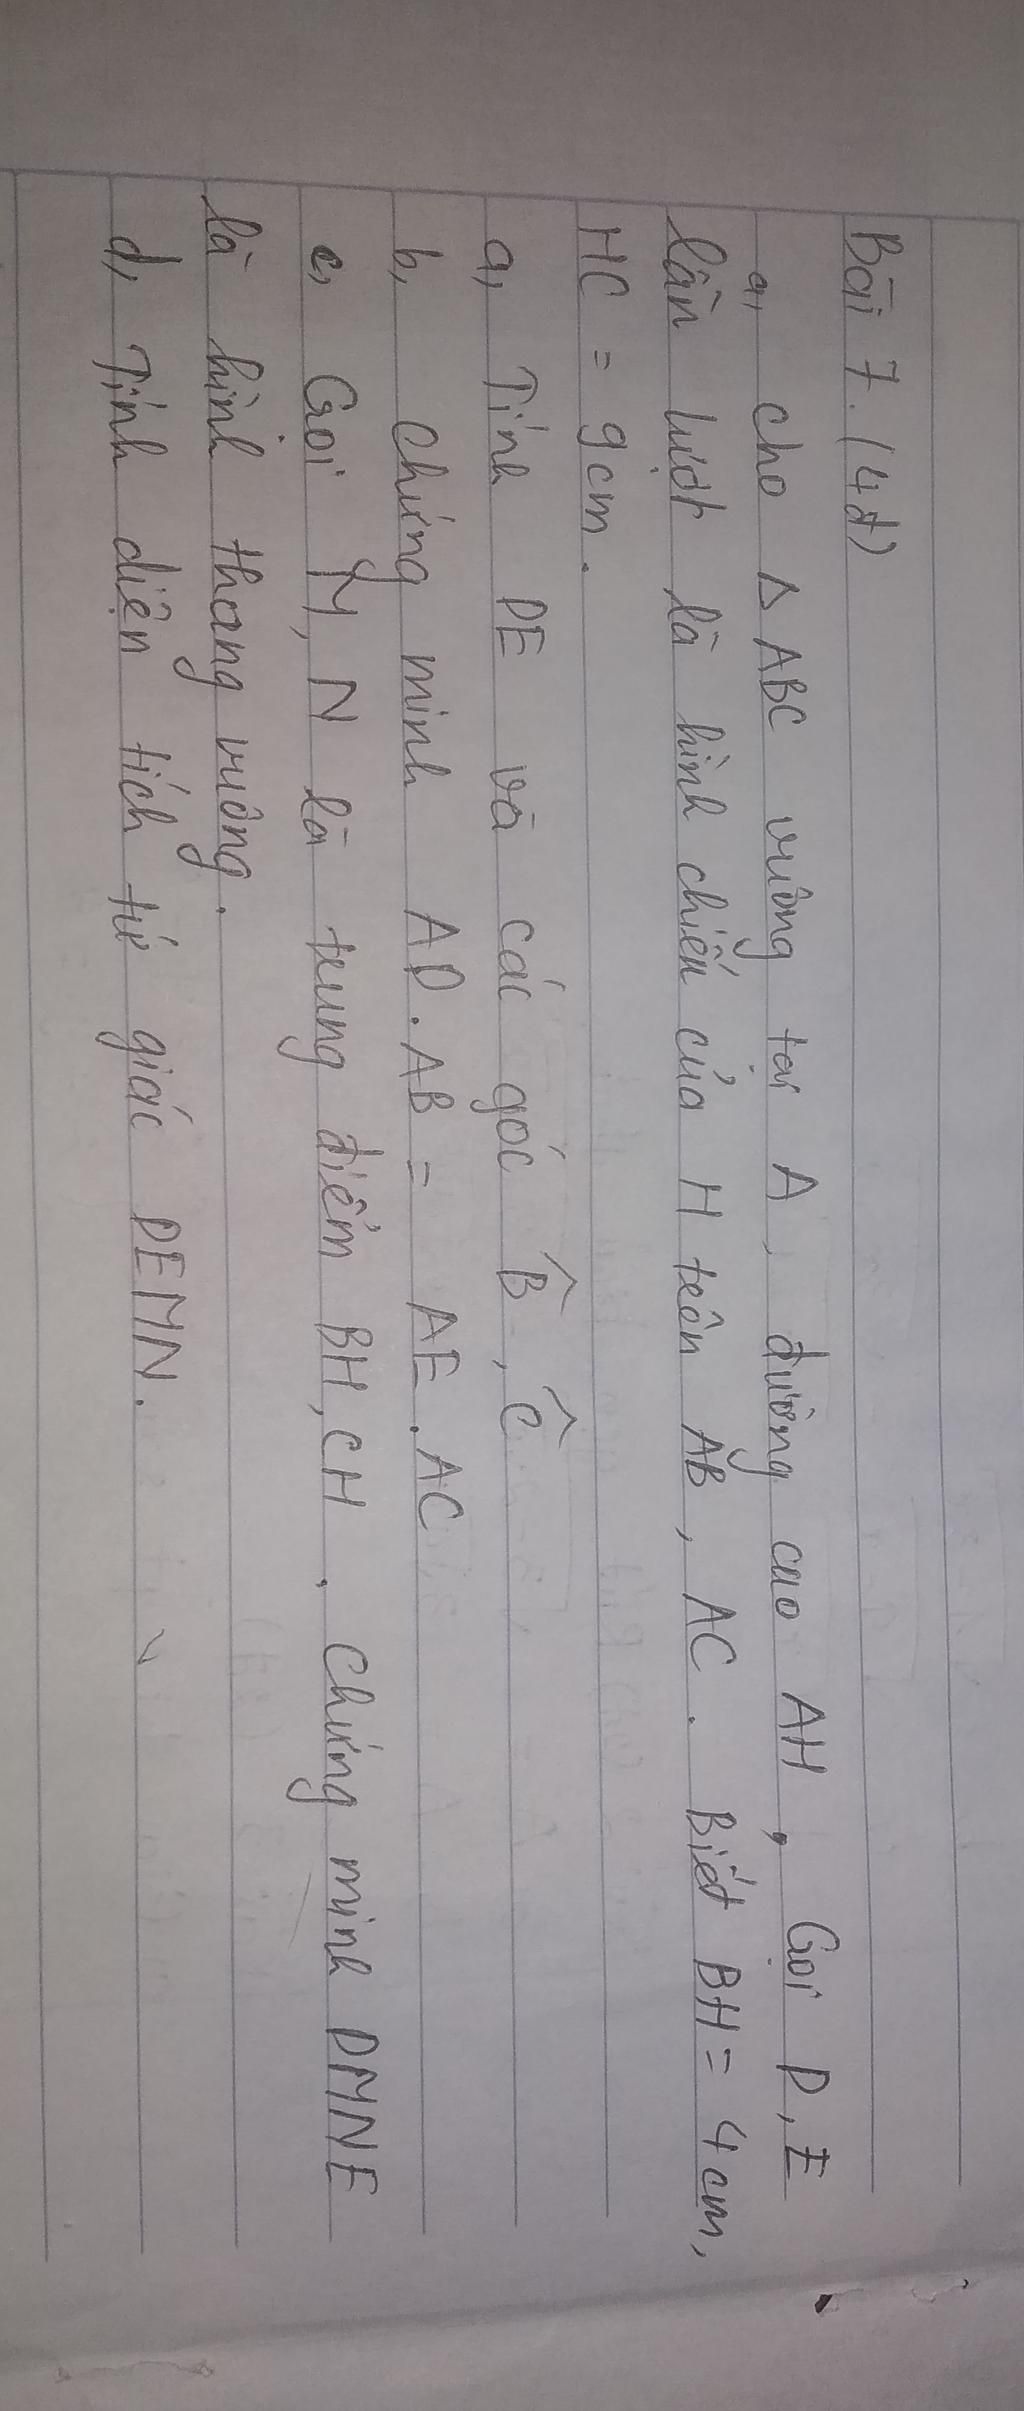 Bài 7. (4đ)
a, cho Δ ABC vuông tại A, đường cao AH, Gọi D, E
lần lượt là hình chiếu của H trên AB, AC. Biết BH = 4cm,
HC = 9cm.
a, Tính DE và các góc B̂, Ĉ
b, Chứng minh AD.AB = AE.AC
c, Gọi M, N là trung điểm BH, CH. Chứng minh DMNE
là hình thang vuông.
d, Tính diện tích tứ giác DEMN.